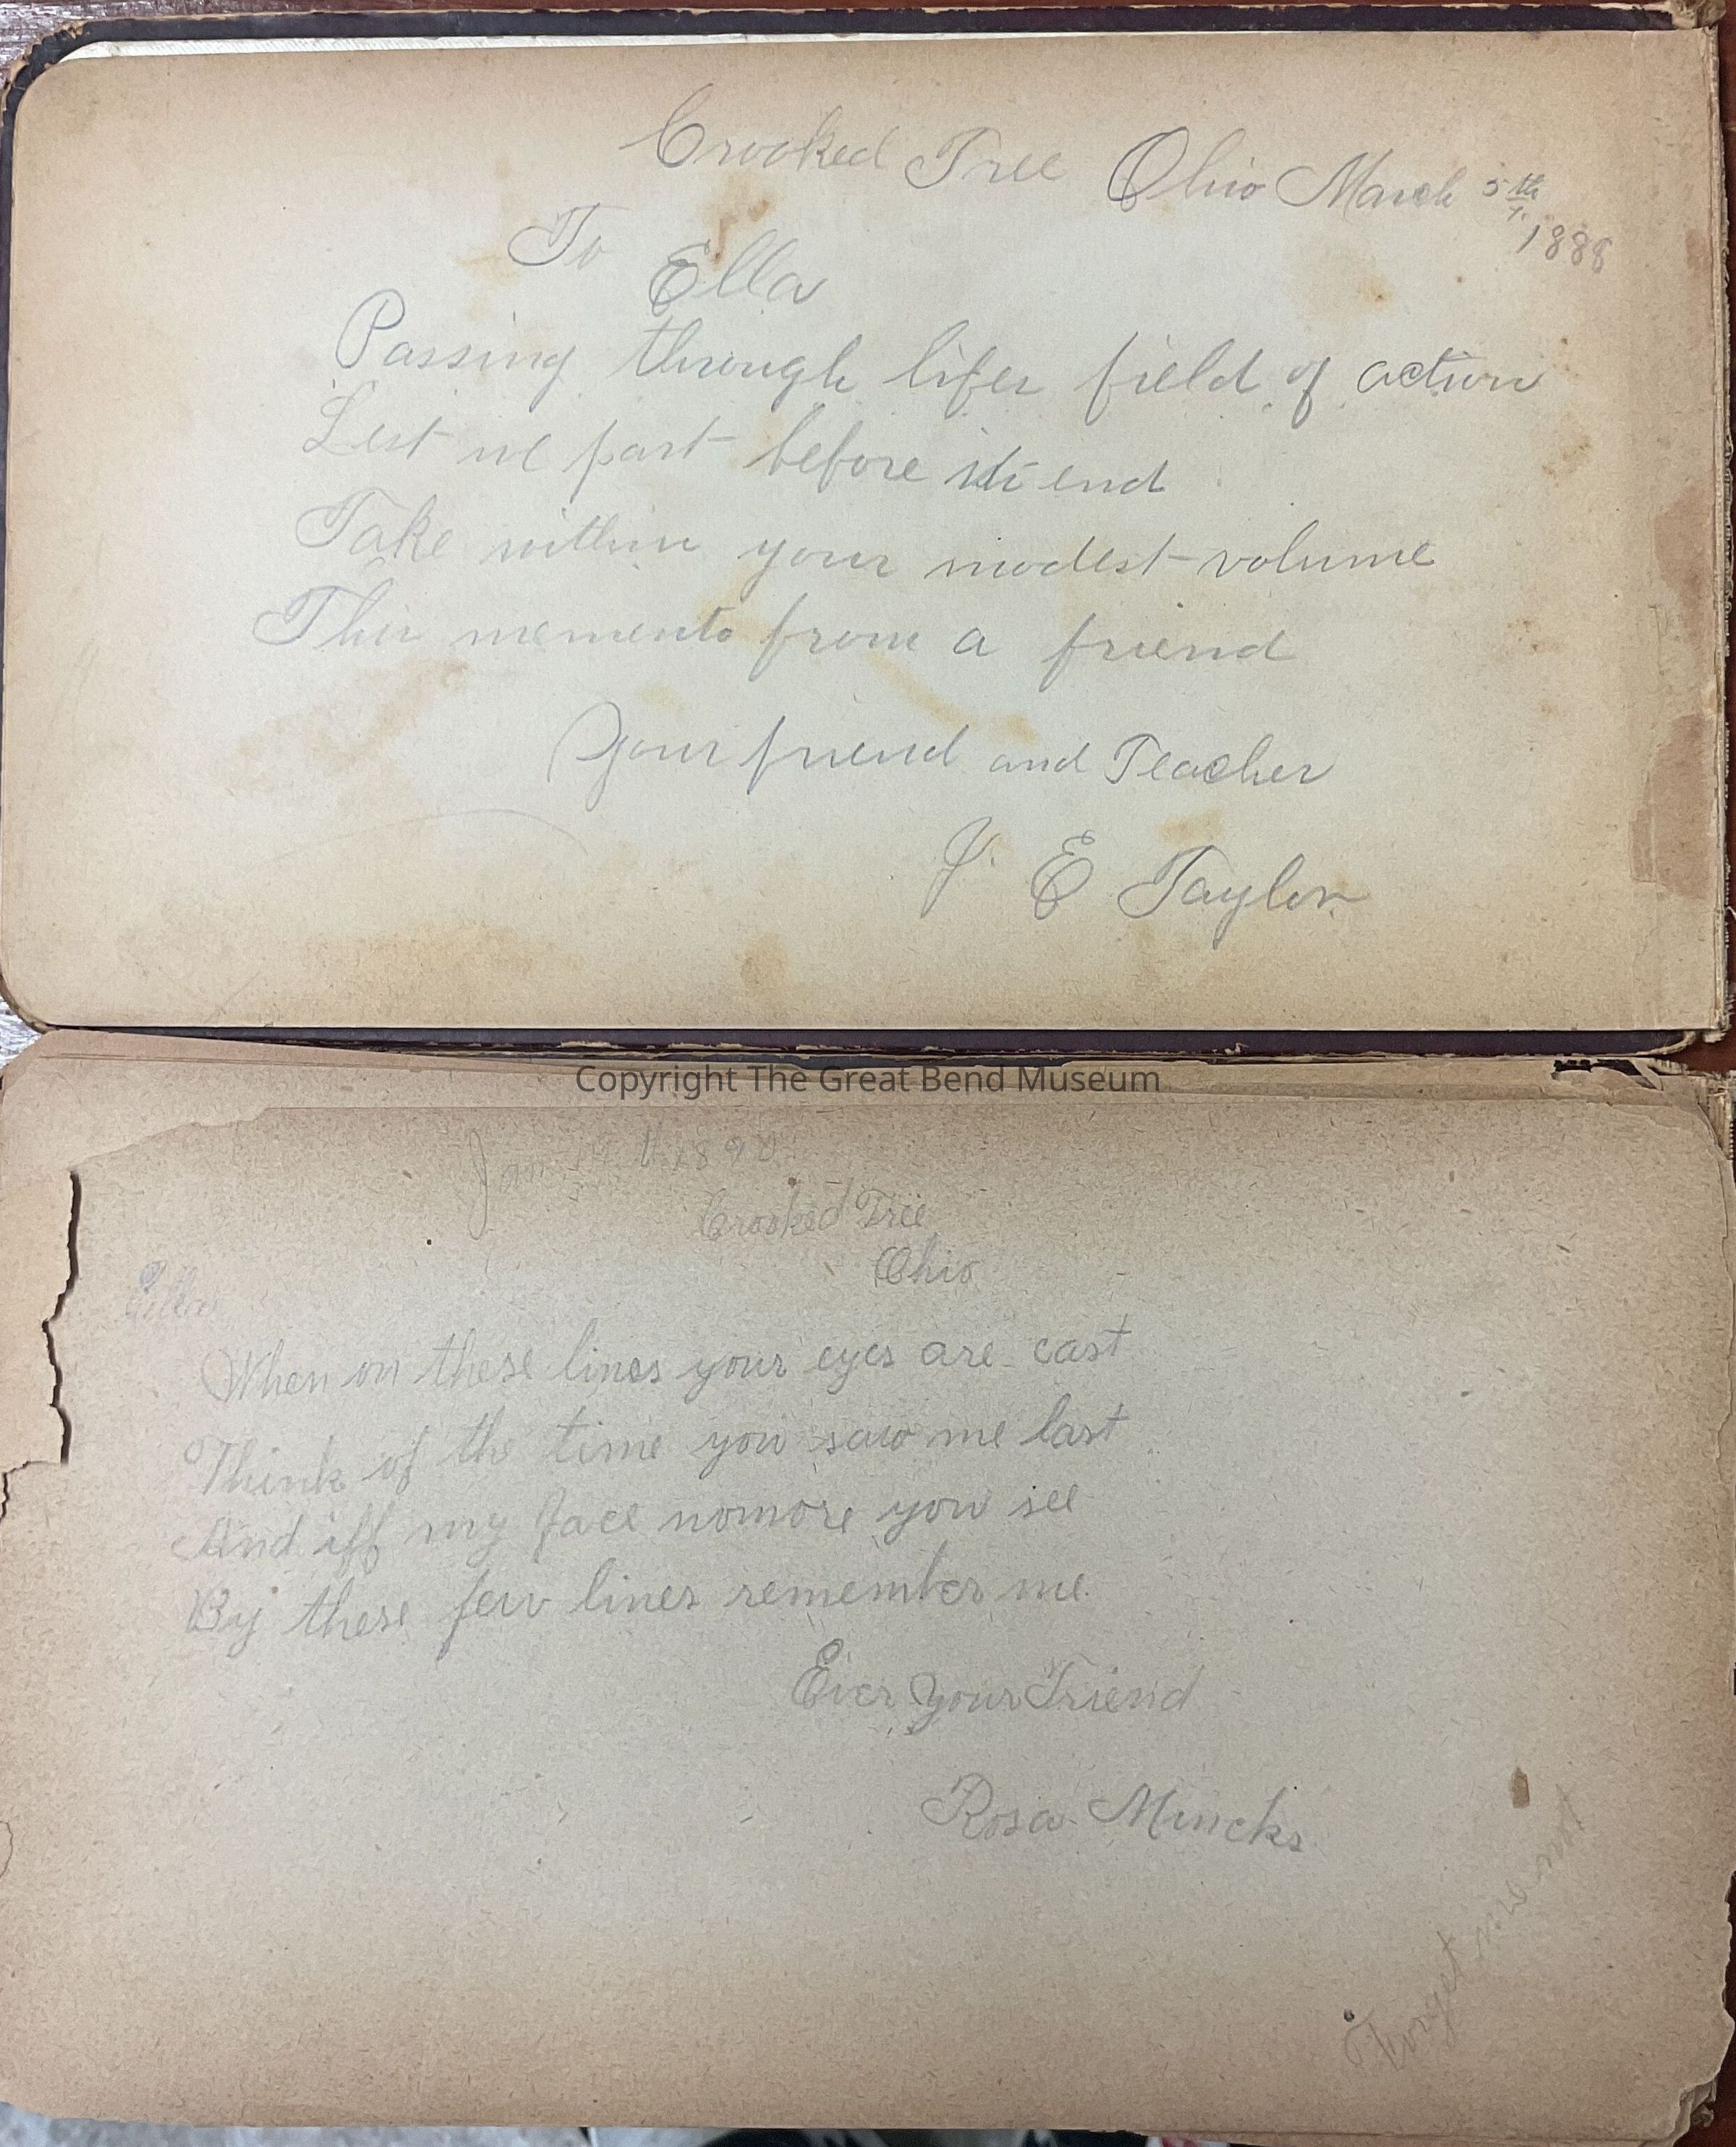 Crooked Tree Ohio March 5th
1888
To
Ella
Passing through lifes field of action
Lest we part before its end
Take within your modest volume
This memento from a friend
Your friend and Teacher
J. E Taylor
Copyright The Great Bend Museum
Jan 1890
Crooked Tree
Ohio
Ella
When on these lines your eyes are cast
Think of the time you saw me last
And iff my face nomore you see
By these few lines remember me.
Ever your Friend
Rosa Mincks
Forget me not